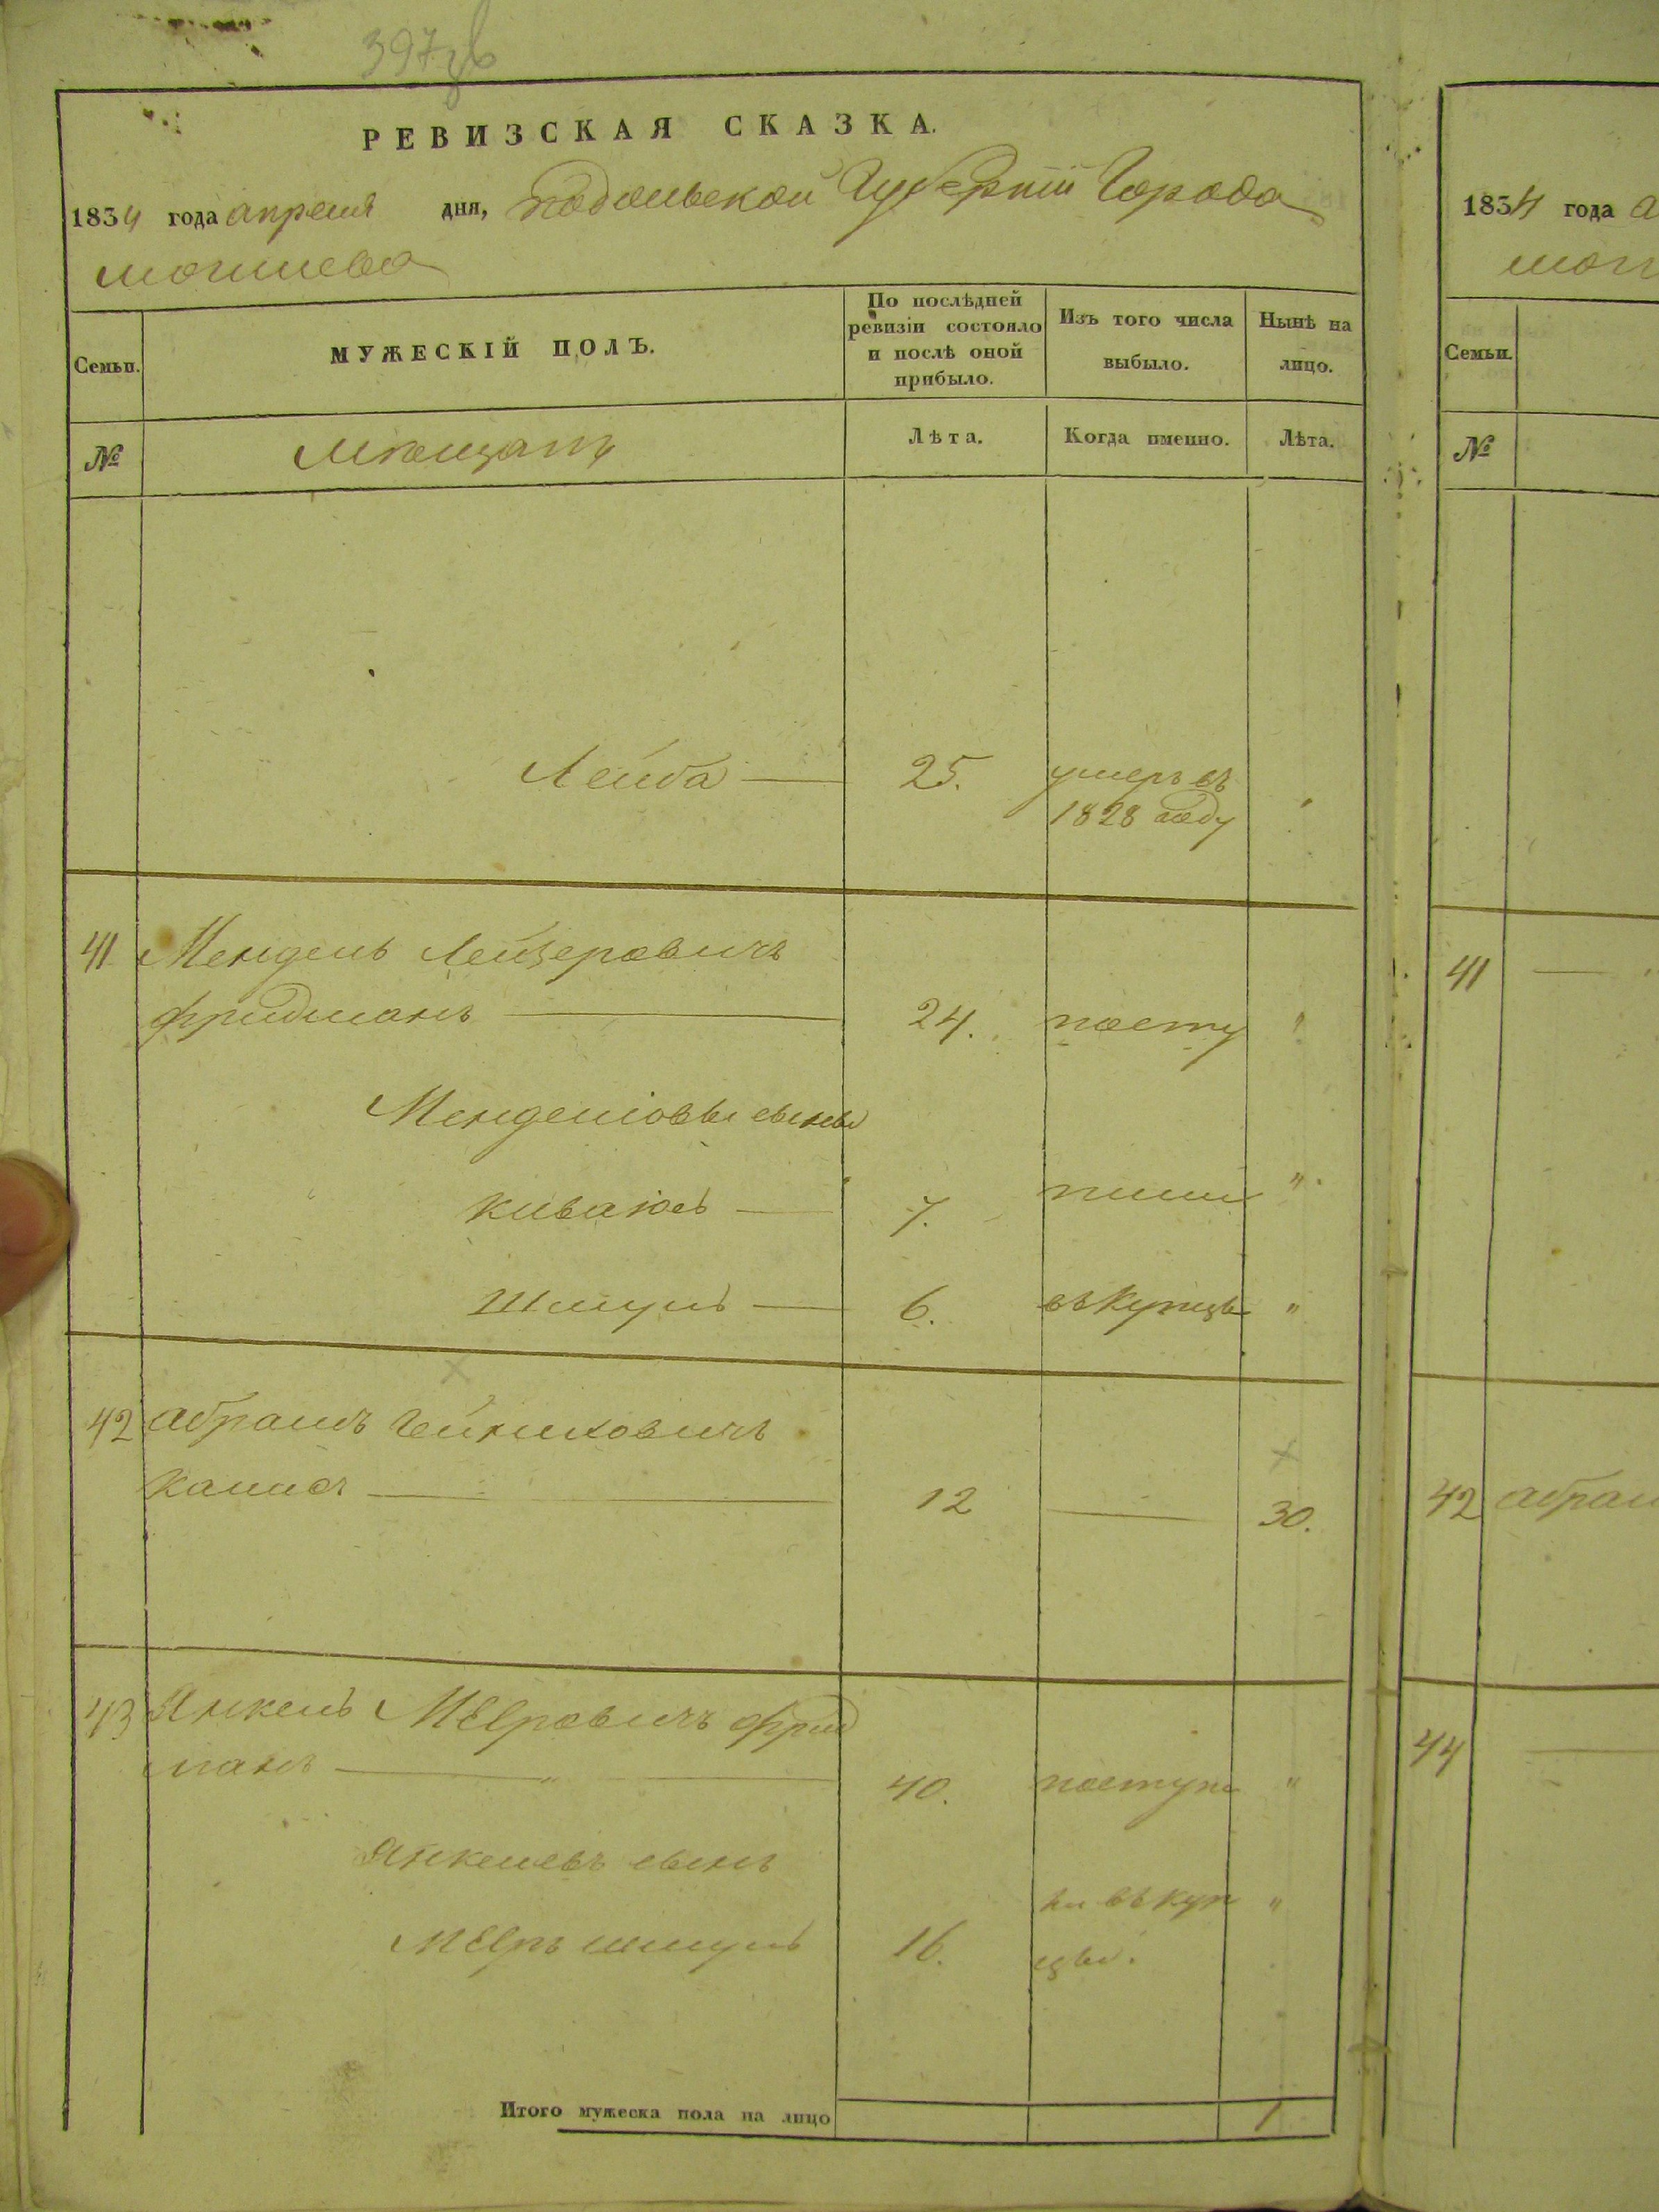 397
РЕВИЗСКАЯ СКАЗКА.
1834 года апреля дня, подольской Губернии Города
могилева
Семьи. МУЖЕСКІЙ ПОЛЪ. По послѣдней ревизіи состояло и послѣ оной прибыло. Изъ того числа выбыло. Нынѣ на лицо.
№ Мѣщанъ Лѣта. Когда именно. Лѣта.
Лейба — 25. умеръ въ
1828 году
41 Мендель Лейзеровичъ
фридманъ — 24. посту "
Менделіовы сыновья
7. пили "
Шмуль — 6. въ купцы "
42 абрамъ
12 — 30.
43 Янкель Меэровичъ фрид
манъ — " — 40. поступи "
Янкелевъ сынъ
ли въ куп "
Меэръ шмуль 16. цы.
Итого мужеска пола на лицо 1
1834 года а
мог
Семьи.
№
41 —
42 абрам
44 —